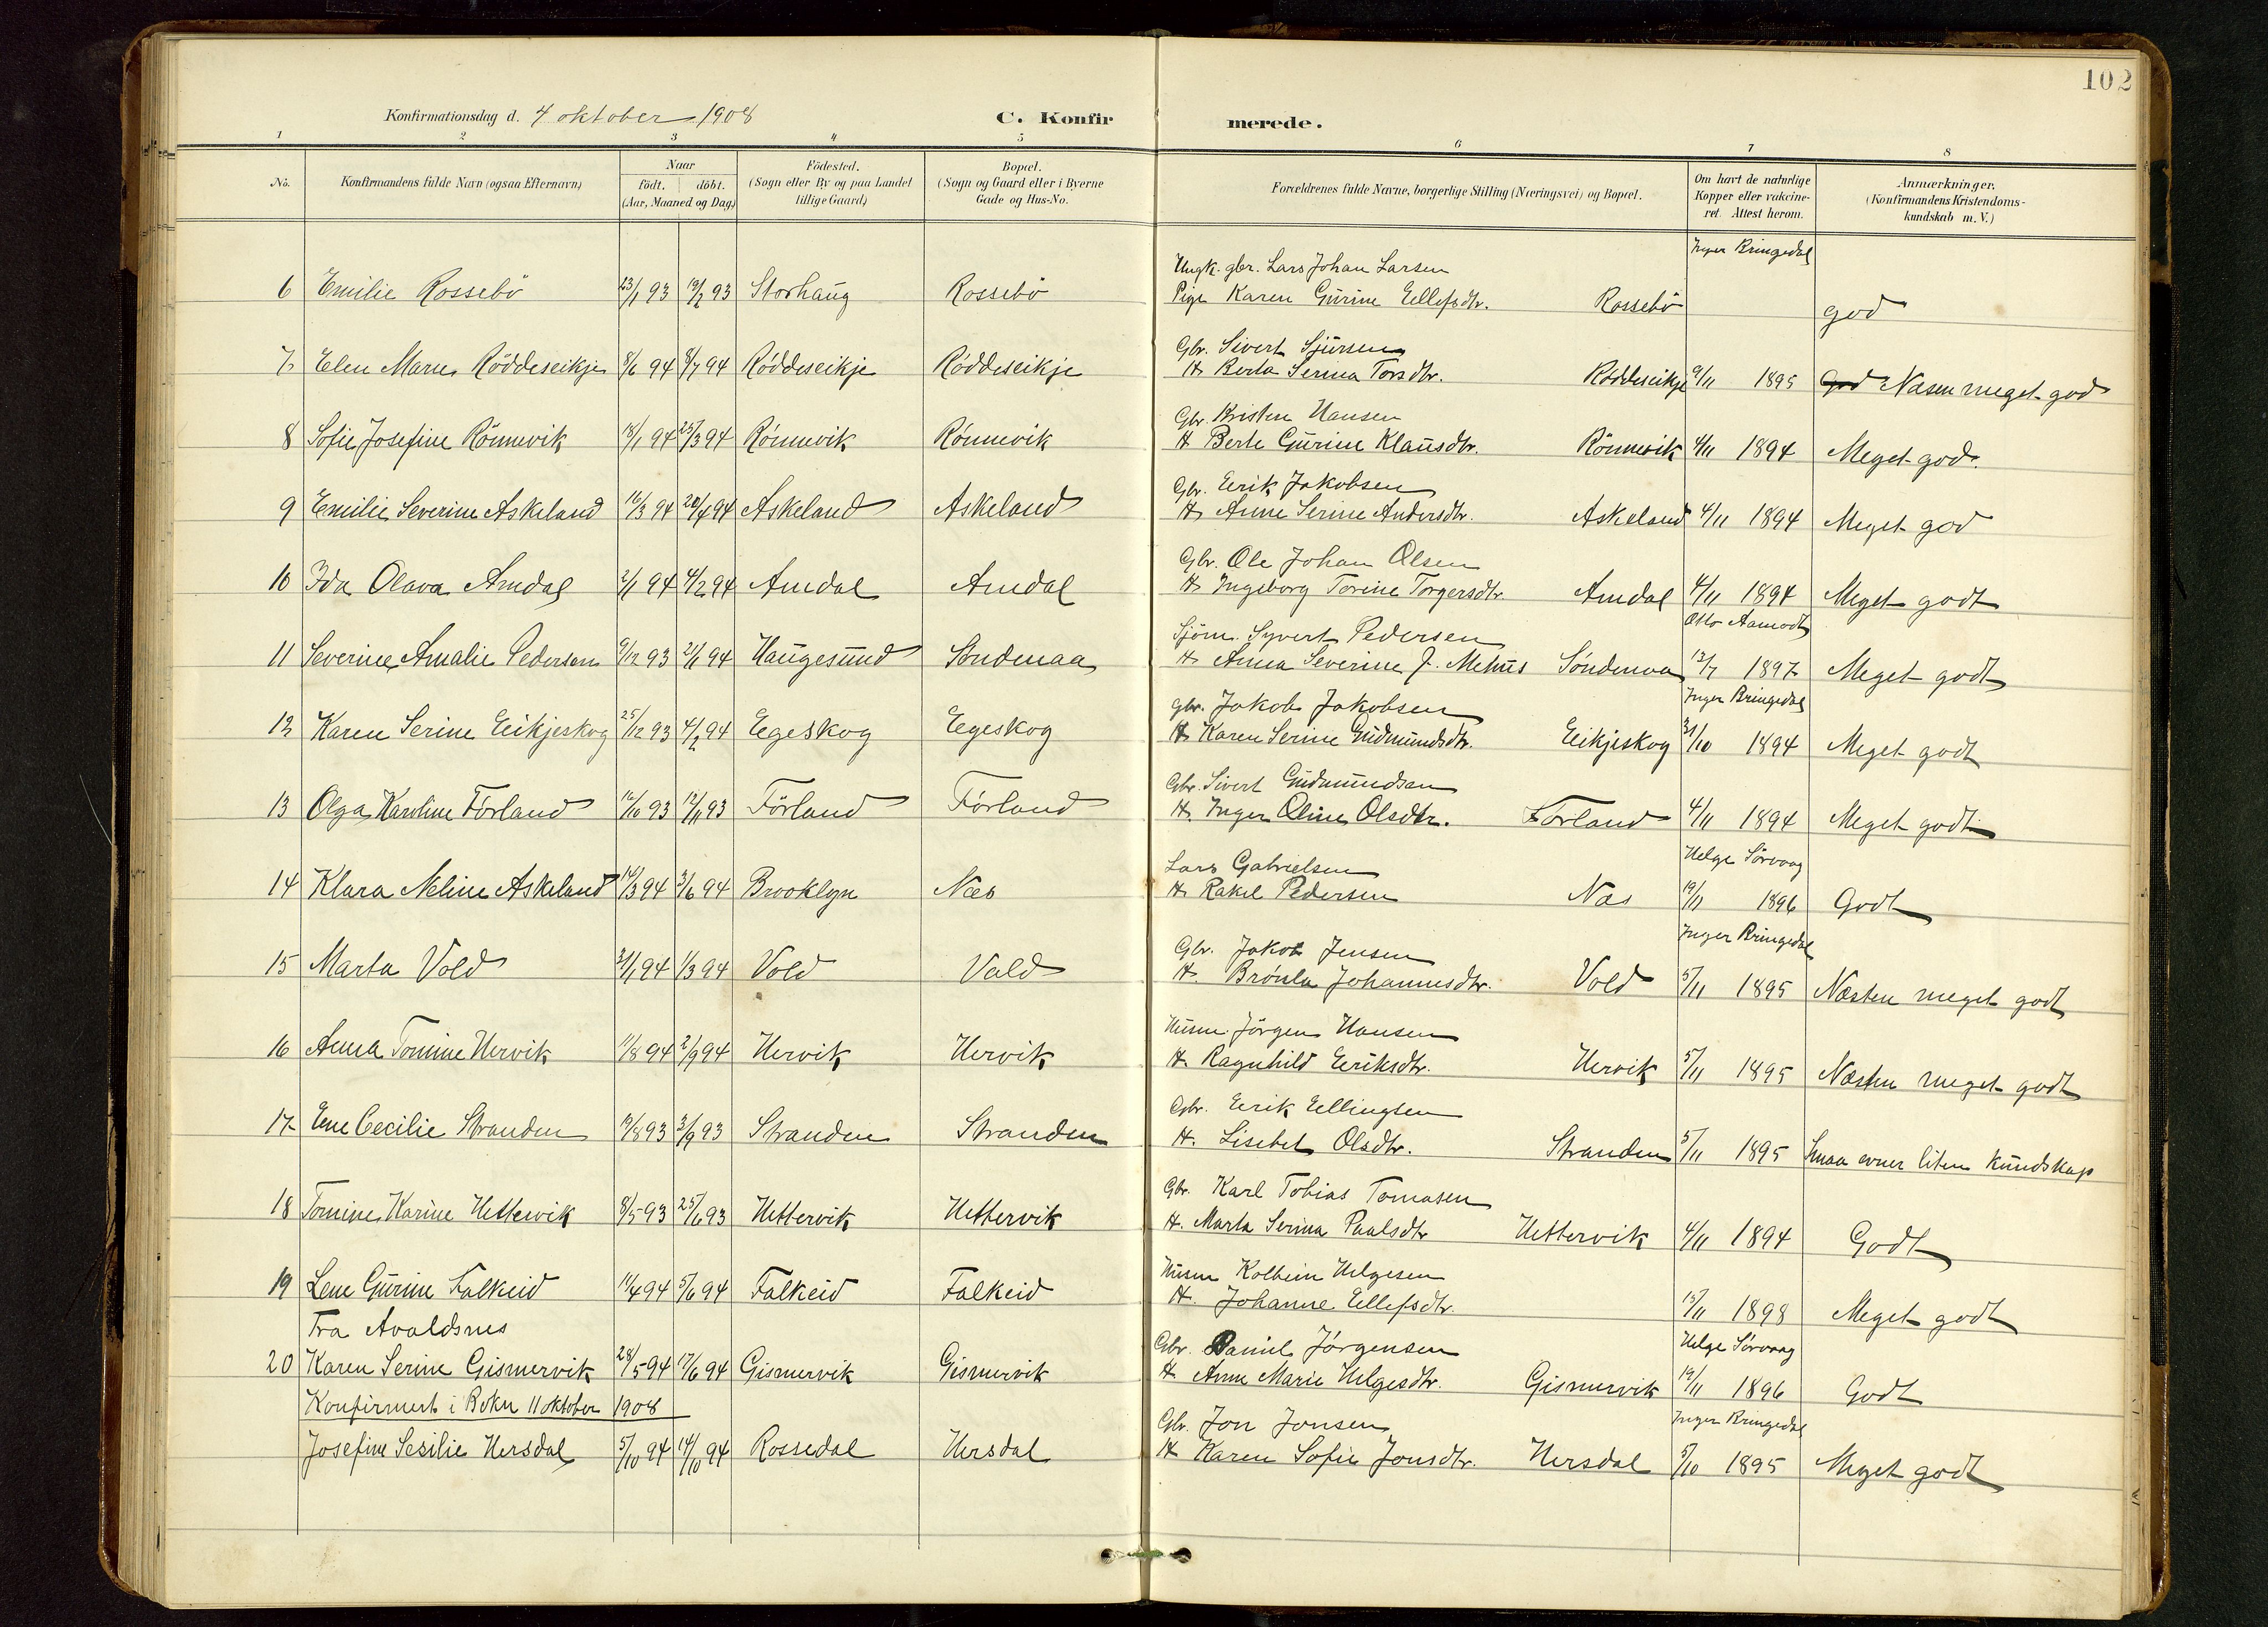 102
Konfirmationsdag d. 4 oktober 1908
C. Konfirmerede.
1 2 3 4 5 6 7 8
No.
Konfirmandens fulde Navn (ogsaa Efternavn)
Naar
födt. döbt.
(Aar, Maaned og Dag)
Födested.
(Sogn eller By og paa Landet
tillige Gaard)
Bopæl.
(Sogn og Gaard eller i Byerne
Gade og Hus-No.
Forældrenes fulde Navne, borgerlige Stilling (Næringsvei) og Bopæl.
Om havt de naturlige
Kopper eller vakcine-
ret. Attest herom.
Anmærkninger.
(Konfirmandens Kristendoms-
kundskab m. V.)
Inger Bringedal
Ungk. gbr. Lars Johan Larsen
6 Emilie Rossebö 23/1 93 19/2 93 Storhaug Rossebö Pige Karen Gurine Ellefsdtr. Rossebö god
Gbr. Sivert Sjursen
7 Elen Marie Röddeseikje 8/6 94 8/7 94 Röddeseikje Röddeseikje H. Berta Serina Torsdtr. Röddeseikje 9/11 1895 God Næsten meget god
Gbr. Kristen Hansen
8 Sofie Josefine Rönnevik 18/1 94 25/3 94 Rönnevik Rönnevik H Berte Gurine Klausdtr. Rönnevik 4/11 1894 Meget god.
Gbr. Eerik Jakobsen
9 Emilie Severine Askeland 16/3 94 20/4 94 Askeland Askeland H. Anne Serine Andersdtr. Askeland 4/11 1894 Meget god
Gbr. Ole Johan Olsen
10 Ida Olava Amdal 2/1 94 4/2 94 Amdal Amdal H. Ingeborg Torine Torgersdtr. Amdal 4/11 1894 Meget godt
Otto Aamodt
Sjöm. Syvert Pedersen
11 Severine Amalie Pedersen 9/12 93 2/1 94 Haugesund Söndenaa H. Anna Severine J. Mehus Söndenaa 13/7 1897 Meget godt
Inger Bringedal
gbr. Jakob Jakobsen
12 Karen Serine Eikjeskog 25/12 93 4/2 94 Egeskog Egeskog H. Karen Serine Gudmundsdtr. Eikjeskog 31/10 1894 Meget godt
Gbr. Sivert Gudmundsen
13 Olga Karoline Förland 16/10 93 12/11 93 Förland Förland H. Inger Oline Olsdtr. Förland 4/11 1894 Meget godt
Helge Sörvaag
Lars Gabrielsen
14 Klara Neline Askeland 14/3 94 3/6 94 Brooklyn Næs H. Rakel Pedersen Næs 19/11 1896 Godt
Inger Bringedal
Gbr. Jakob Jensen
15 Marta Vold 31/1 94 1/3 94 Vold Vold H. Brönla Johannesdtr. Vold 5/11 1895 Næsten meget godt
Husm. Jörgen Hansen
16 Anna Tomine Hervik 11/8 94 2/9 94 Hervik Hervik H. Ragnhild Eeriksdtr. Hervik 5/11 1895 Næsten meget godt
Gbr. Eerik Ellingsen
17 Ene Cecilie Stranden 10/8 93 3/9 93 Stranden Stranden H. Lisebet Olsdtr. Stranden 5/11 1895 Smaa evner liten kundskap
Gbr. Karl Tobias Tomasen
18 Tomine Karine Hettervik 8/5 93 25/6 93 Hettervik Hettervik H. Marta Serina Paalsdtr Hettervik 4/11 1894 Godt
Husm Kolbein Helgesen
19 Lene Gurine Falkeid 11/4 94 5/6 94 Falkeid Falkeid H. Johanne Ellefsdtr. 15/11 1898 Meget godt
Fra Avaldsnes
Helge Sörvaag
Gbr. Daniel Jörgensen
20 Karen Serine Gismervik 28/5 94 17/6 94 Gismervik Gismervik H. Anne Marie Helgesdtr. Gismervik 19/11 1896 Godt
Konfirmert i Bokn 11 oktober 1908
Inger Bringedal
Gbr. Jon Jonsen
Josefine Sesilie Hersdal 5/10 94 14/10 94 Rossedal Hersdal H Karen Sofie Jonsdtr. Hersdal 5/10 1895 Meget godt